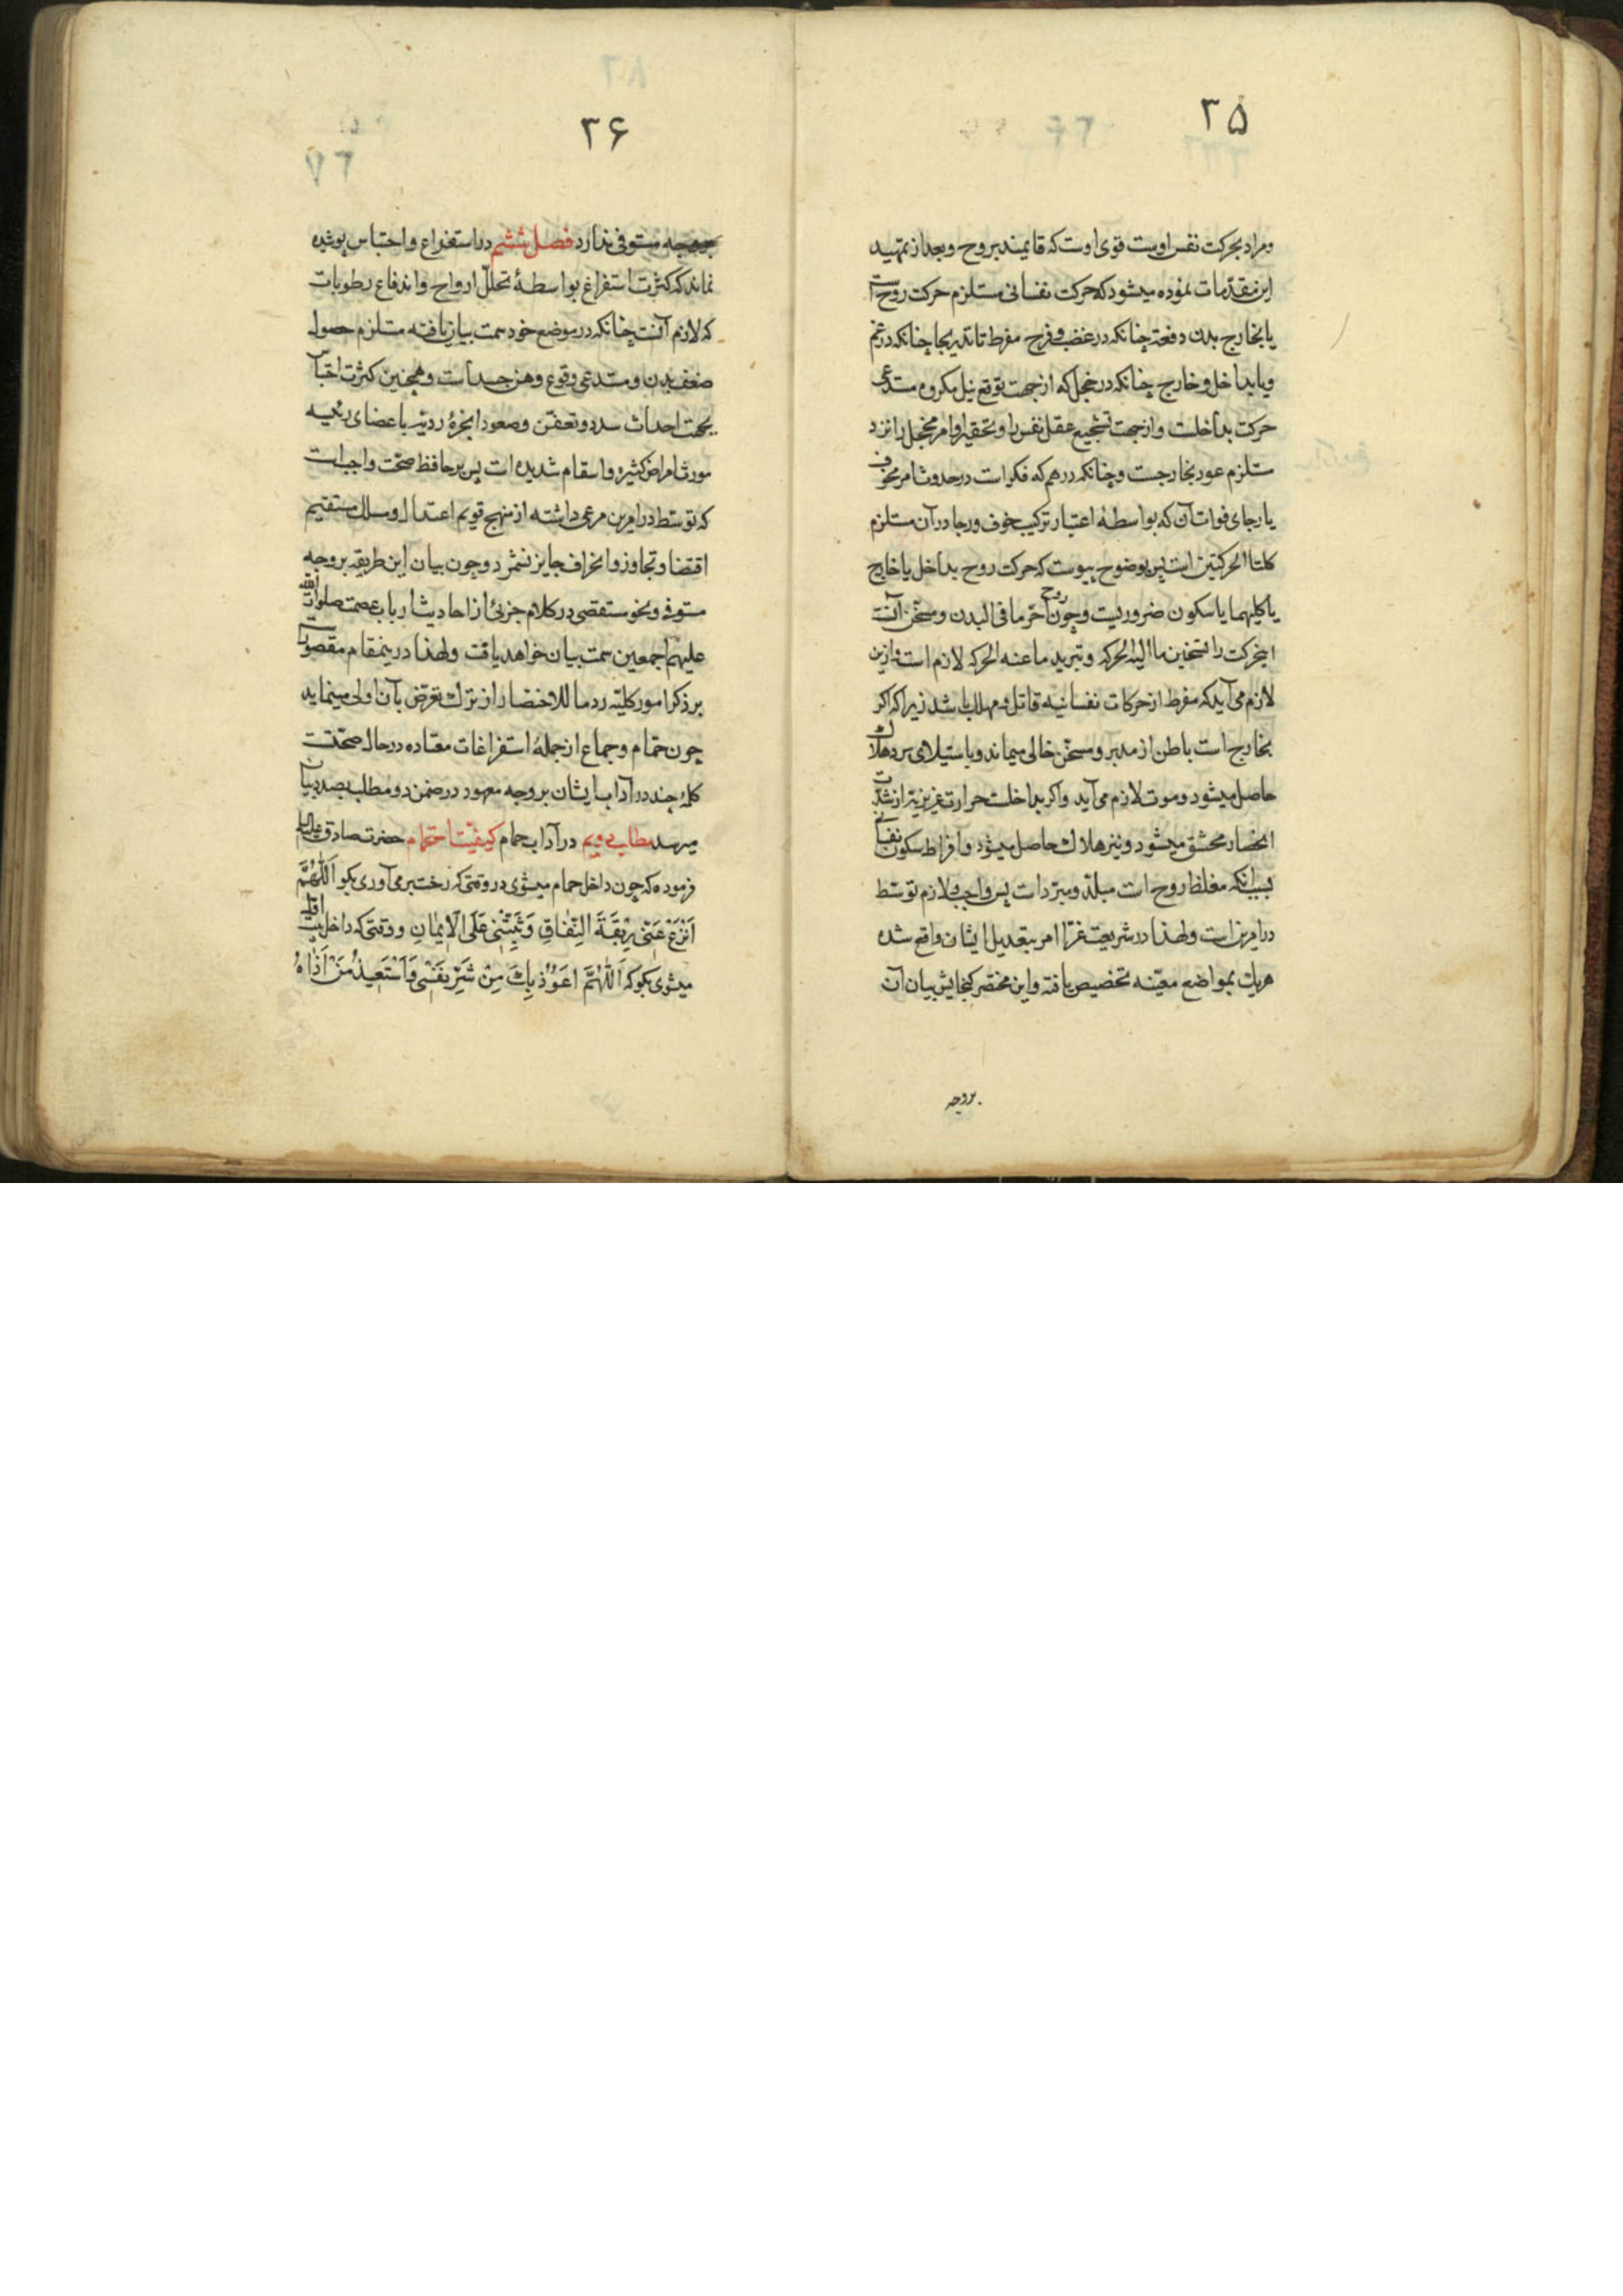 ۳۵
ومراد بحركت نفس اوست قوى اوست كه قايمند بروح وبعد از تمهيد
اين مقدّمات نموده ميشود كه حركت نفسانى مستلزم حركت روح است
يا بخارج بدن دفعة چنانكه در غضب و فرح مفرط تا تدريجا چنانكه در غم
ويا بداخل وخارج چنانكه در خجل كه از جهت توقع نيل مكروه مستدعى
حركت بداخلست وازجهت تشجيع عقل نفس را وتحقير او امر مخجل را نزد
مستلزم عود بخارجست وچنانكه در هم كه فكر است در حدوث امر مخوف
يا رجاى فوات آن كه بواسطهٔ اعتبار تركيب خوف ورجا در آن مستلزم
كلتا الحركتين است پس بوضوح پيوست كه حركت روح بداخل يا خارج
يا كليهما يا سكون ضروريست وچون روح احرّ ما فى البدن ومسخّن آنست
اينحركت را تسخين ما اليه الحركه وتبريد ما عنه الحركه لازم است وازين
لازم مى آيد كه مفرط از حركات نفسانيه قاتل ومهلك باشد زيرا كه اكر
بخارج است باطن از مدبر ومسخّن خالى ميماند وباستيلاى برد هلاك
حاصل ميشود وموت لازم مى آيد واكر بداخلست حرارت غريزيه از شدّت
انحصار محشق ميشود ونيز هلاك حاصل ميشود وافراط سكون نفسانى
بسبب آنكه مغلظ روح است مبلّد ومبرّد است پس واجب ولازم توسّط
در امرين است ولهذا در شريعت غرّا امر بتعديل ايشان واقع شده
هريك بمواضع معيّنه تخصيص يافته واين مختصر كنجايش بيان آن
بروجه
۳۶
بروجه مستوفى ندارد فصل ششم در استفراغ واحتباس پوشيده
نماند كه كثرت استفراغ بواسطهٔ تحلّل ارواح واندفاع رطوبات
كه لازم آنست چنانكه در موضع خود سمت بيان يافته مستلزم حصول
ضعف بدن ومستدعى وقوع وهن جسد است وهمچنين كثرت احتباس
بجهت احداث سدد وتعفّن وصعود ابخرهٔ رديّه باعضاى رئيسه
مورث امراض كثيره واسقام شديده است پس بر حافظ صحّت واجبست
كه توسّط در امرين مرعى داشته از منهج قويم اعتدال ومسلك مستقيم
اقتضا وتجاوز وانحراف جايز نشمرد وچون بيان اين طريقه بروجه
مستوفى ونحو مستقصى در كلام جزئى از احاديث ارباب عصمت صلوات الله
عليهم اجمعين سمت بيان خواهد يافت ولهذا در ينمقام مقصور است
بر ذكر امور كليّه روما للاختصار از ترك تعرّض بآن اولى مينمايد
چون حمّام وجماع از جملهٔ استفراغات معتاده در حال صحّتست
كلمهٔ چند در آداب ايشان بروجه معهود در ضمن دو مطلب بصدد بيان
ميرسد مطلب دويم در آداب حمام كيفيّت استحمام حضرت صادق عليه السلم
فرموده كه چون داخل حمام ميشوى در وقتى كه رخت بر مى آورى بكو اَللّهُمَّ
اَنْزِعْ عَنّى رِبْقَةَ النِّفاقِ وَثَبِّتْنى عَلَى الْايمانِ ووقتى كه داخل بيت اوّل
ميشوى بكو كه اَللّهُمَّ اعَوُذُ بِكَ مِنْ شَرِّ نَفْسى وَاَسْتَعيذُ مِنْ اَذاهُ